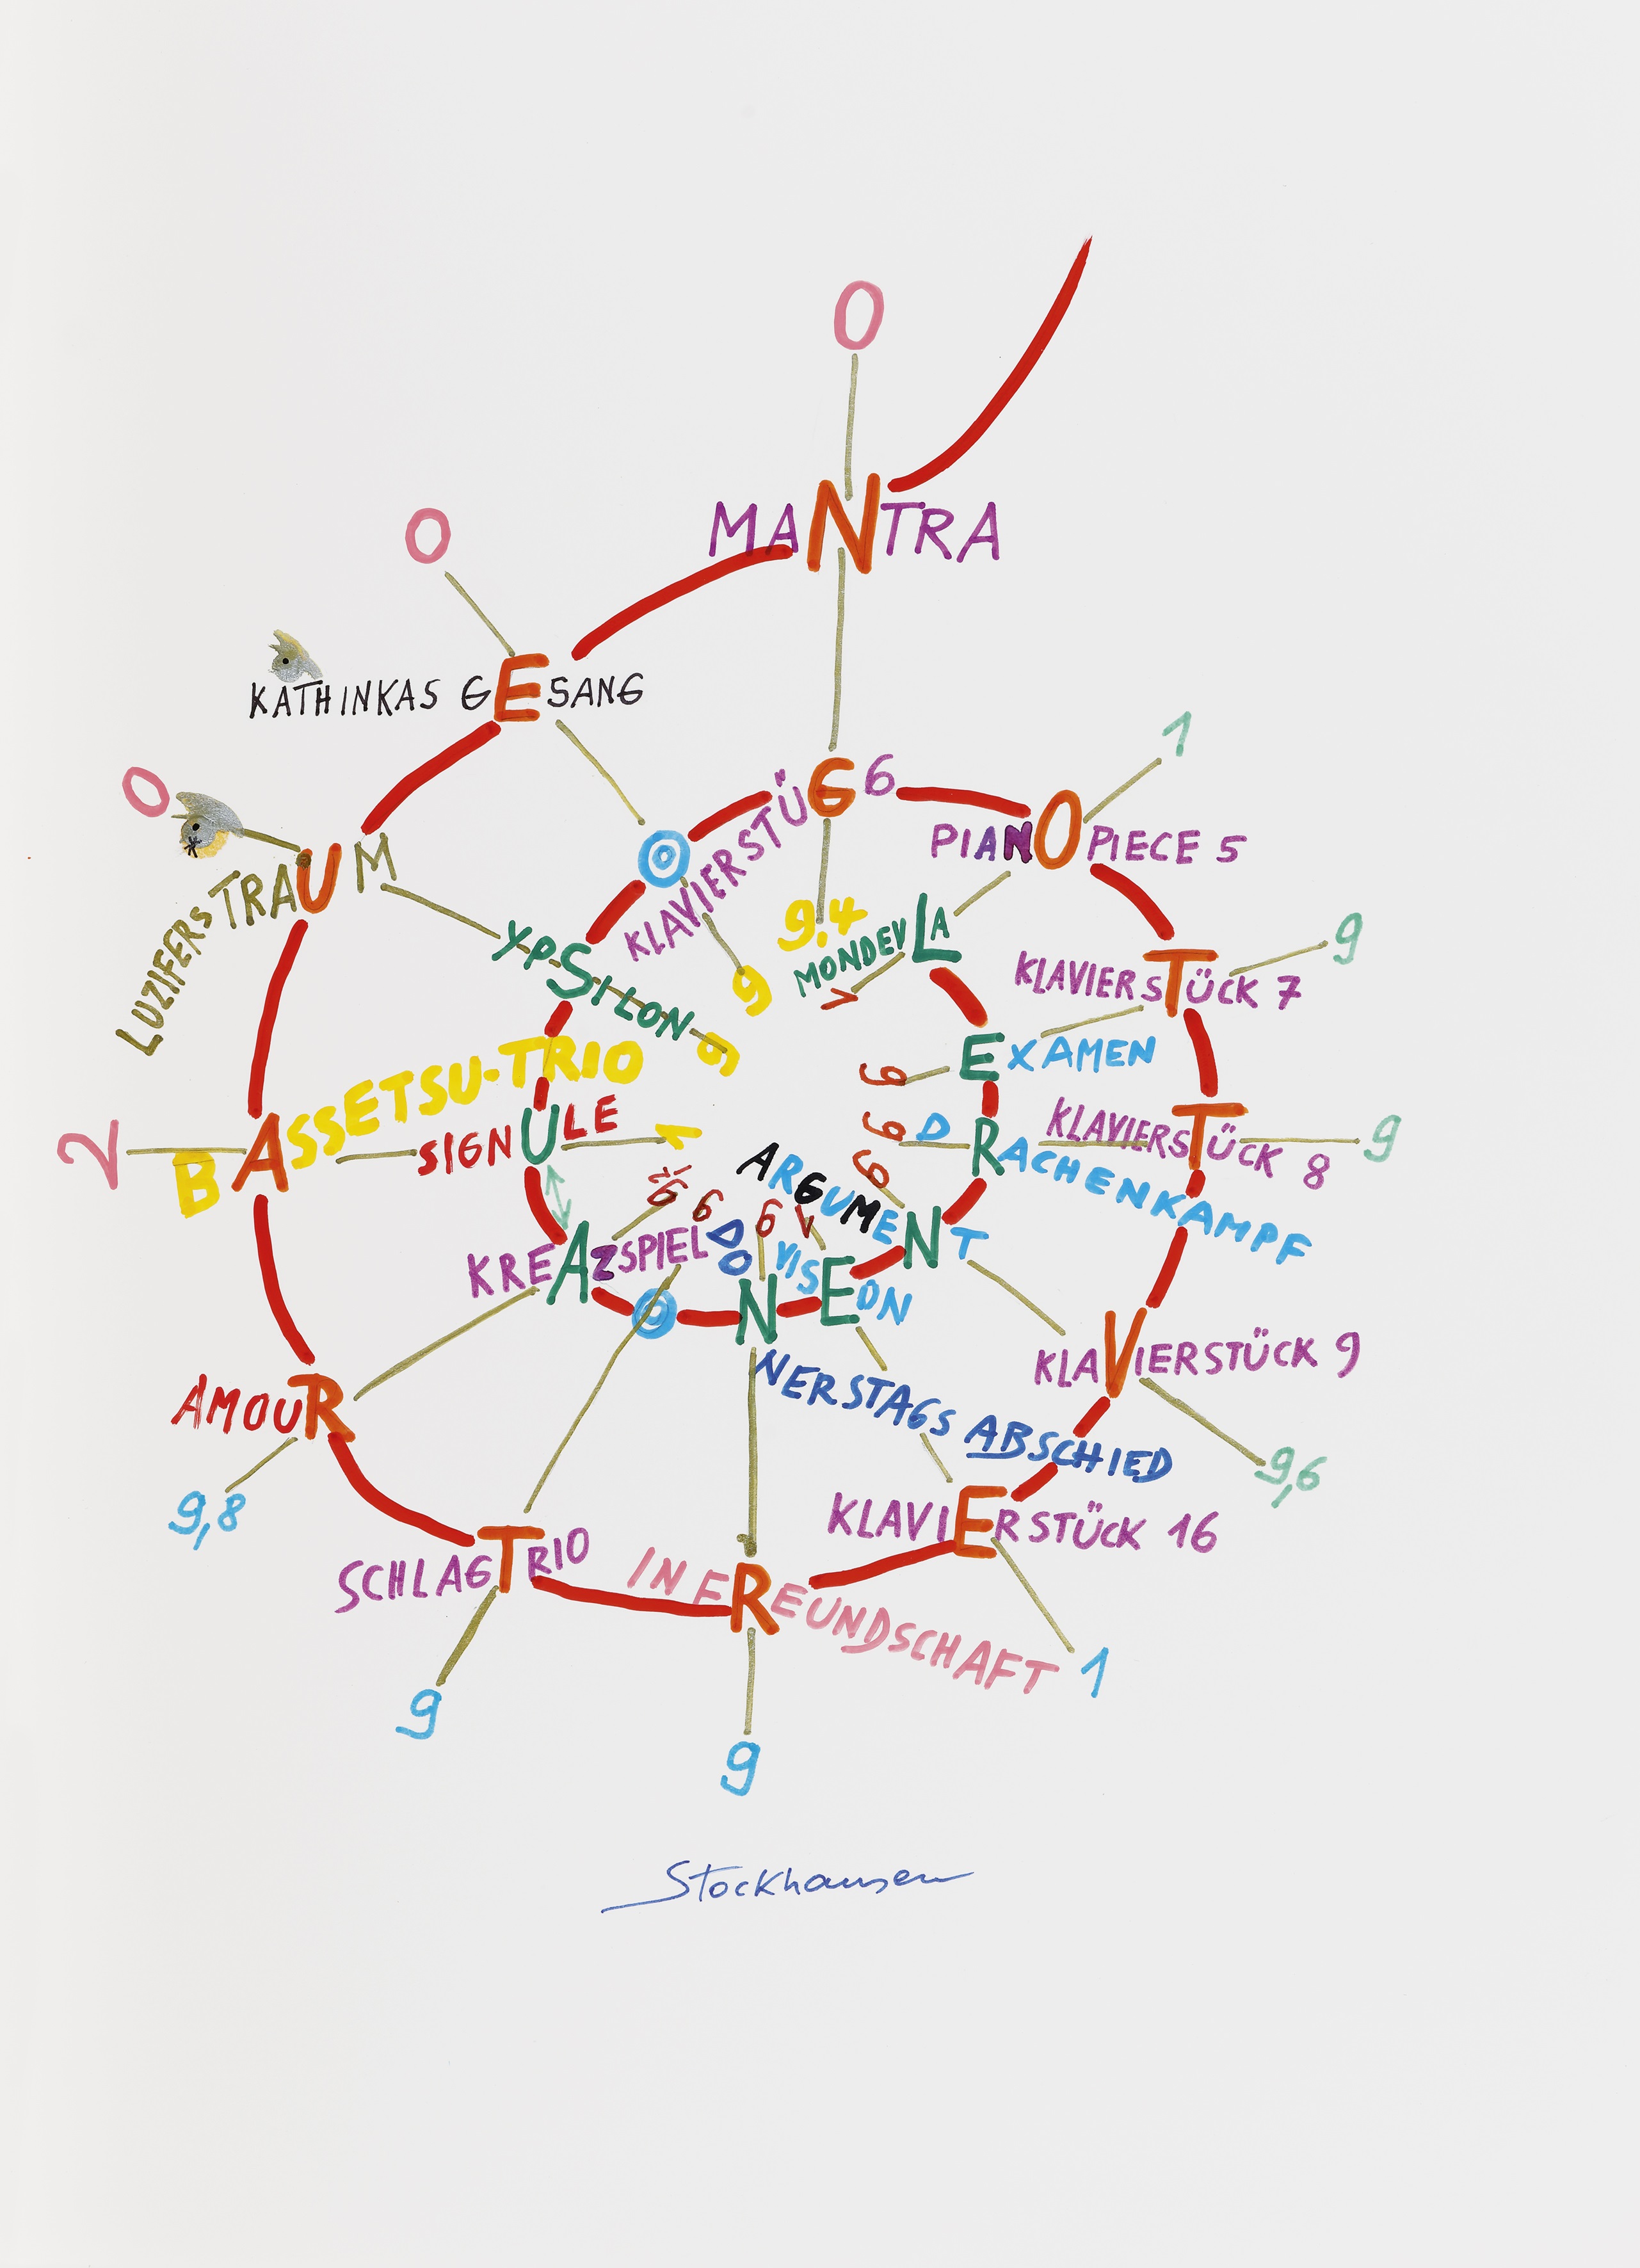 0
MANTRA
0
KATHINKAS GESANG
0
LUZIFERS TRAUM
KLAVIERSTÜG6
1
PIANO PIECE 5
9,4
9
MONDEVLA
1
9
KLAVIERSTÜCK 7
YPSILON
9
EXAMEN
9
2
BASSETSU-TRIO
SIGNULE
1
9
DRACHENKAMPF
KLAVIERSTÜCK 8
9
9
ARGUMENT
KREAZSPIEL
6
6
1
VISEON
DONNERSTAGS ABSCHIED
KLAVIERSTÜCK 9
9,6
AMOUR
9,8
KLAVIERSTÜCK 16
1
SCHLAGTRIO
9
IN FREUNDSCHAFT
9
Stockhausen